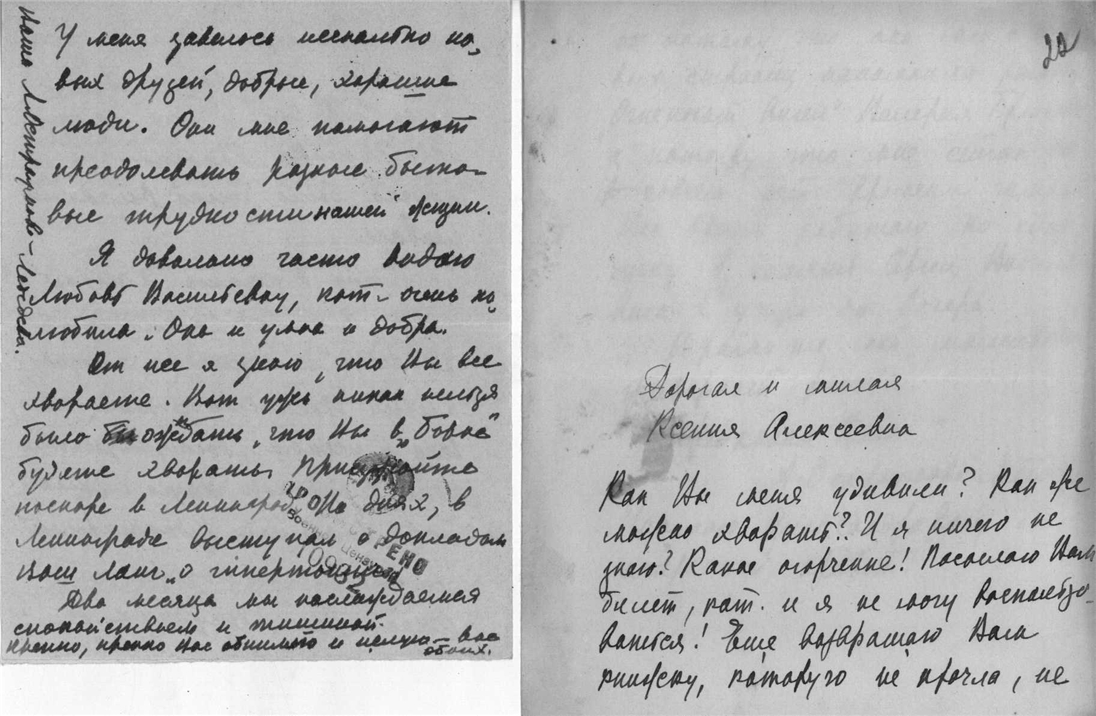 У меня завелось несколько но-
вых друзей, добрые, хорошие
люди. Они мне помогают
преодолевать разные быто-
вые трудности нашей жизни.
Я довольно часто видаю
Любовь Васильевну, кот. очень по-
любила. Она и умна и добра.
От нее я знаю, что Вы все
хвораете. Вот уж никак нельзя
было ожидать, что Вы в
будете хворать.
поскоре в Ленинград. На днях, в
Ленинграде выступал с докладом
Ваш Ланг „о гипертонии"
Два месяца мы наслаждаемся
спокойствием и тишиной.
Крепко, крепко Вас обнимаю и целую вас
обоих.
Ваша А. Остроумова-Лебедева.
22
Дорогая и милая
Ксения Алексеевна
Как Вы меня удивили? Как же
можно хворать?! И я ничего не
знаю? Какое огорчение! Посылаю Вам
билет, кот. и я не могу воспользо-
ваться! Еще возвращаю Вам
книжку, которую не прочла, не